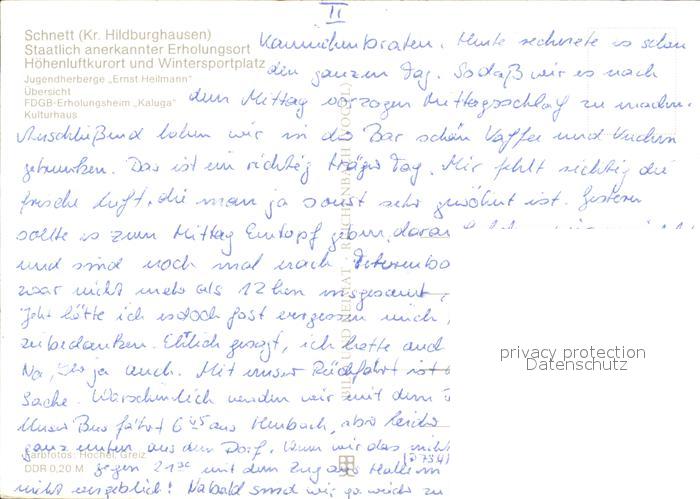 II
Schnett (Kr. Hildburghausen)
Staatlich anerkannter Erholungsort
Höhenluftkurort und Wintersportplatz
Jugendherberge „Ernst Heilmann"
Übersicht
FDGB-Erholungsheim „Kaluga"
Kulturhaus
Kaninchenbraten. Heute rechnete es schon
den ganzen Tag. Sodaß wir es nach
dem Mittag vorzogen Mittagsschlaf zu machen.
Anschließend haben wir in der Bar schön Kaffee und Kuchen
getrunken. Das ist ein richtig träger Tag. Mir fehlt richtig die
frische Luft, die man ja sonst sehr gewöhnt ist. Gestern
sollte es zum Mittag Eintopf geben, daran
und sind noch mal nach
zwar nicht mehr als 12 km insgesamt,
Jetzt hätte ich jedoch fast vergessen mich,
zu bedanken. Ehrlich gesagt, ich hatte auch
Na, ja auch. Mit unser Rückfahrt ist
Sache. Warscheinlich werden wir mit dem
Unser Bus fährt 6 45 aus, also
ganz unten aus dem Dorf. Wenn wir das nicht
gegen 21 mit dem Zug aus Halle
nicht vergeblich! Na bald sind wir ja wieder zu
Farbfotos: Höchel, Greiz
DDR 0,20 M
BILD UND HEIMAT · REICHENBACH (VOGTL)
privacy protection
Datenschutz